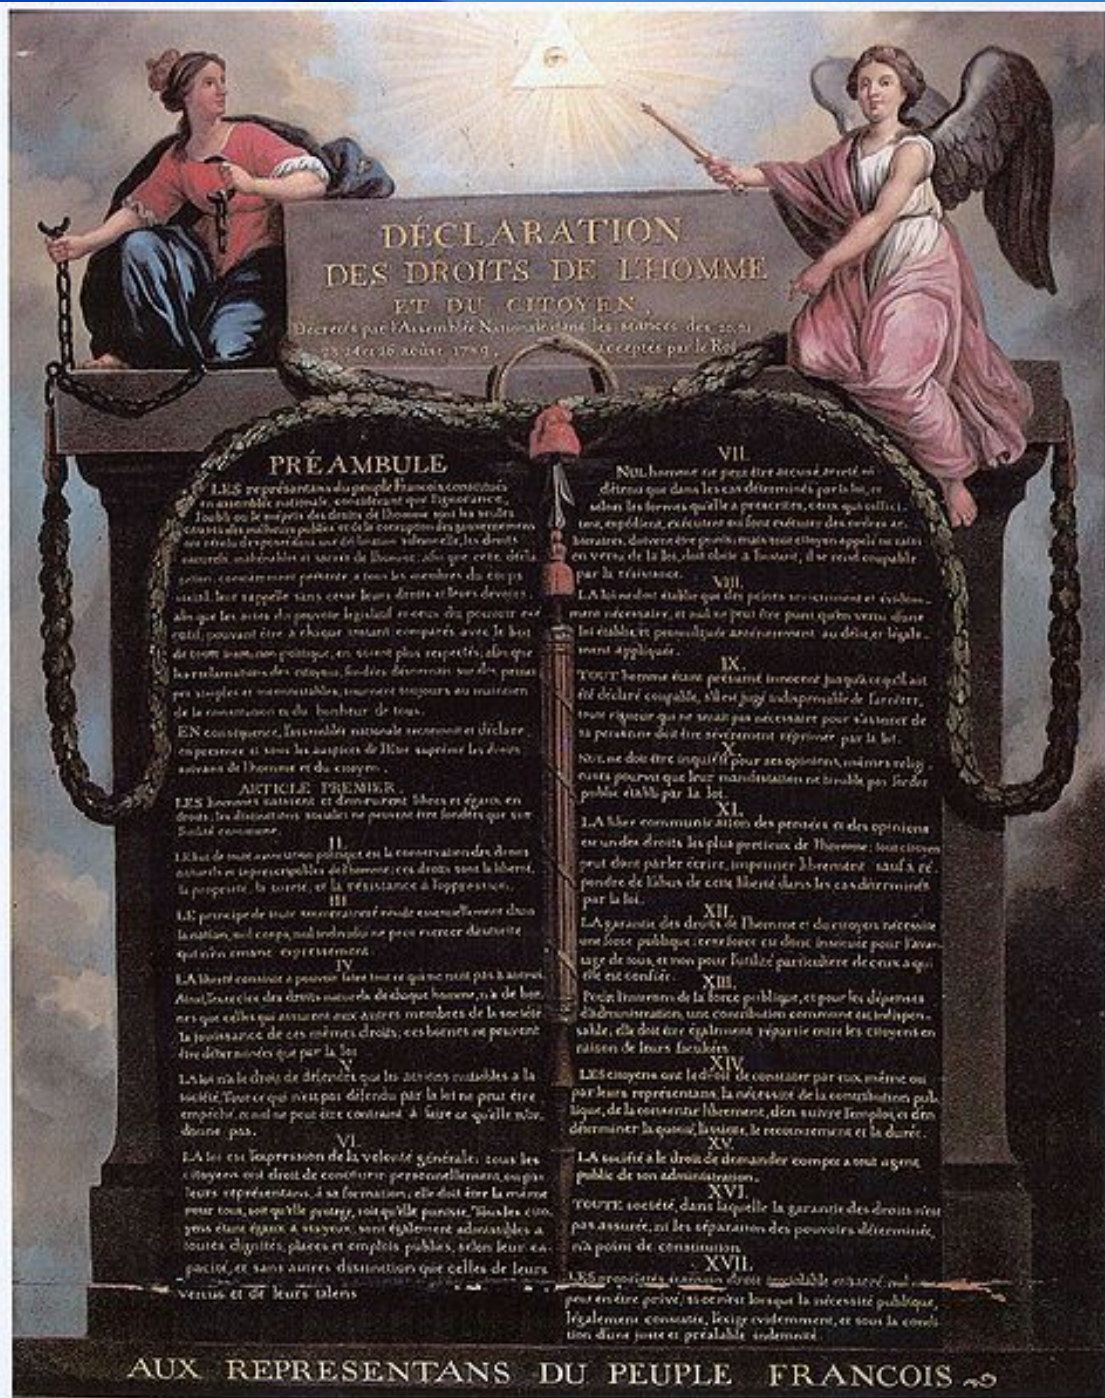 DÉCLARATION
DES DROITS DE L'HOMME
ET DU CITOYEN,
Décretés par l'Assemblée Nationale dans les séances des 20, 21
23, 24 et 26 août 1789, acceptés par le Roi
PRÉAMBULE
LES représentans du peuple Francois constitués
en assemblée nationale, considérant que l'ignorance,
l'oubli ou le mépris des droits de l'homme sont les seules
causes des malheurs publics et de la corruption des gouvernemens
ont résolu d'exposer dans une déclaration solemnelle, les droits
naturels inaliénables et sacrés de l'homme: afin que cette décla
ration, constamment présente a tous les membres du corps
social, leur rappelle sans cesse leurs droits et leurs devoirs
afin que les actes du pouvoir legislatif et ceux du pouvoir exé
cutif, pouvant être à chaque instant comparés avec le but
de toute institution politique, en soient plus respectés; afin que
les reclamations des citoyens, fondées désormais sur des princi
pes simples et incontestables, tournent toujours au maintien
de la constitution et du bonheur de tous.
EN conséquence, l'assemblée nationale reconnoit et déclare
en presence et sous les auspices de l'Etre suprême les droits
suivans de l'homme et du citoyen.
ARTICLE PREMIER.
LES hommes naissent et demeurent libres et égaux en
droits, les distinctions sociales ne peuvent être fondées que sur
l'utilité commune.
II.
LE but de toute association politique est la conservation des droits
naturels et inprescriptibles de l'homme; ces droits sont la liberté,
la propriété, la sureté, et la résistance à l'oppression.
III
LE principe de toute souveraineté réside essentiellement dans
la nation, nul corps, nul individu ne peut exercer d'autorité
qui n'en emane expressément.
IV
LA liberté consiste a pouvoir faire tout ce qui ne nuit pas à autrui
Ainsi, l'exercice des droits naturels de chaque homme, n'a de bor
nes que celles qui assurent aux autres membres de la société
la jouissance de ces mêmes droits; ces bornes ne peuvent
être déterminées que par la loi
V
LA loi n'a le droit de défendre que les actions nuisibles a la
société. Tout ce qui n'est pas défendu par la loi ne peut être
empêché, et nul ne peut être contraint à faire ce qu'elle n'or
donne pas.
VI.
LA loi est l'expression de la volonté générale; tous les
citoyens ont droit de concourir personnellement, ou par
leurs représentans, à sa formation; elle doit être la même
pour tous, soit qu'elle protege, soit qu'elle punisse, Tous les cito
yens étant égaux a ses yeux, sont également admissibles a
toutes dignités, places et emplois publics, selon leur ca
pacité, et sans autres distinction que celles de leurs
vertus et de leurs talens
VII.
NUL homme ne peut être accusé, arreté, ni
détenu que dans les cas déterminés par la loi, et
selon les formes qu'elle a prescrites, ceux qui sollici
tent, expédient, exécutent ou font exécuter des ordres ar
bitraires, doivent être punis; mais tout citoyen appelé ou saisi
en vertu de la loi, doit obéir a l'instant, il se rend coupable
par la résistance.
VIII.
LA loi ne doit établir que des peines strictement et évidem
ment nécessaire, et nul ne peut être puni qu'en vertu d'une
loi établie et promulguée antérieurement au délit, et légale
ment appliquée.
IX.
TOUT homme étant présumé innocent jusqu'a ce qu'il ait
été déclaré coupable, s'il est jugé indispensable de l'arrêter,
toute rigueur qui ne serait pas nécessaire pour s'assurer de
sa personne doit être sévèrement réprimée par la loi.
X.
NUL ne doit être inquiété pour ses opinions, mêmes religi
euses pourvu que leur manifestation ne trouble pas l'ordre
public établi par la loi.
XI.
LA libre communication des pensées et des opinions
est un des droits les plus precieux de l'homme; tout citoyen
peut donc parler écrire, imprimer librement: sauf a ré
pondre de l'abus de cette liberté dans les cas déterminés
par la loi.
XII.
LA garantie des droits de l'homme et du citoyen nécessite
une force publique; cette force est donc instituée pour l'avan
tage de tous, et non pour l'utilité particuliere de ceux a qui
elle est confiée.
XIII.
POUR l'entretien de la force publique, et pour les dépenses
d'administration, une contribution commune est indispen
sable; elle doit être également répartie entre les citoyens en
raison de leurs facultées
XIV.
LES citoyens ont le droit de constater par eux même ou
par leurs représentans, la nécessité de la contribution pub
lique, de la consentir librement, d'en suivre l'emploi, et d'en
déterminer la quotité, l'assiette, le recouvrement et la durée.
XV.
LA société a le droit de demander compte a tout agent
public de son administration.
XVI.
TOUTE société, dans laquelle la garantie des droits n'est
pas assurée, ni les séparation des pouvoirs déterminée,
n'a point de constitution
XVII.
LES propriétés étant un droit inviolable et sacré, nul ne
peut en être privé, si ce n'est lorsque la nécessité publique,
légalement constatée, l'exige evidemment, et sous la condi
tion d'une juste et préalable indemnité
AUX REPRESENTANS DU PEUPLE FRANCOIS